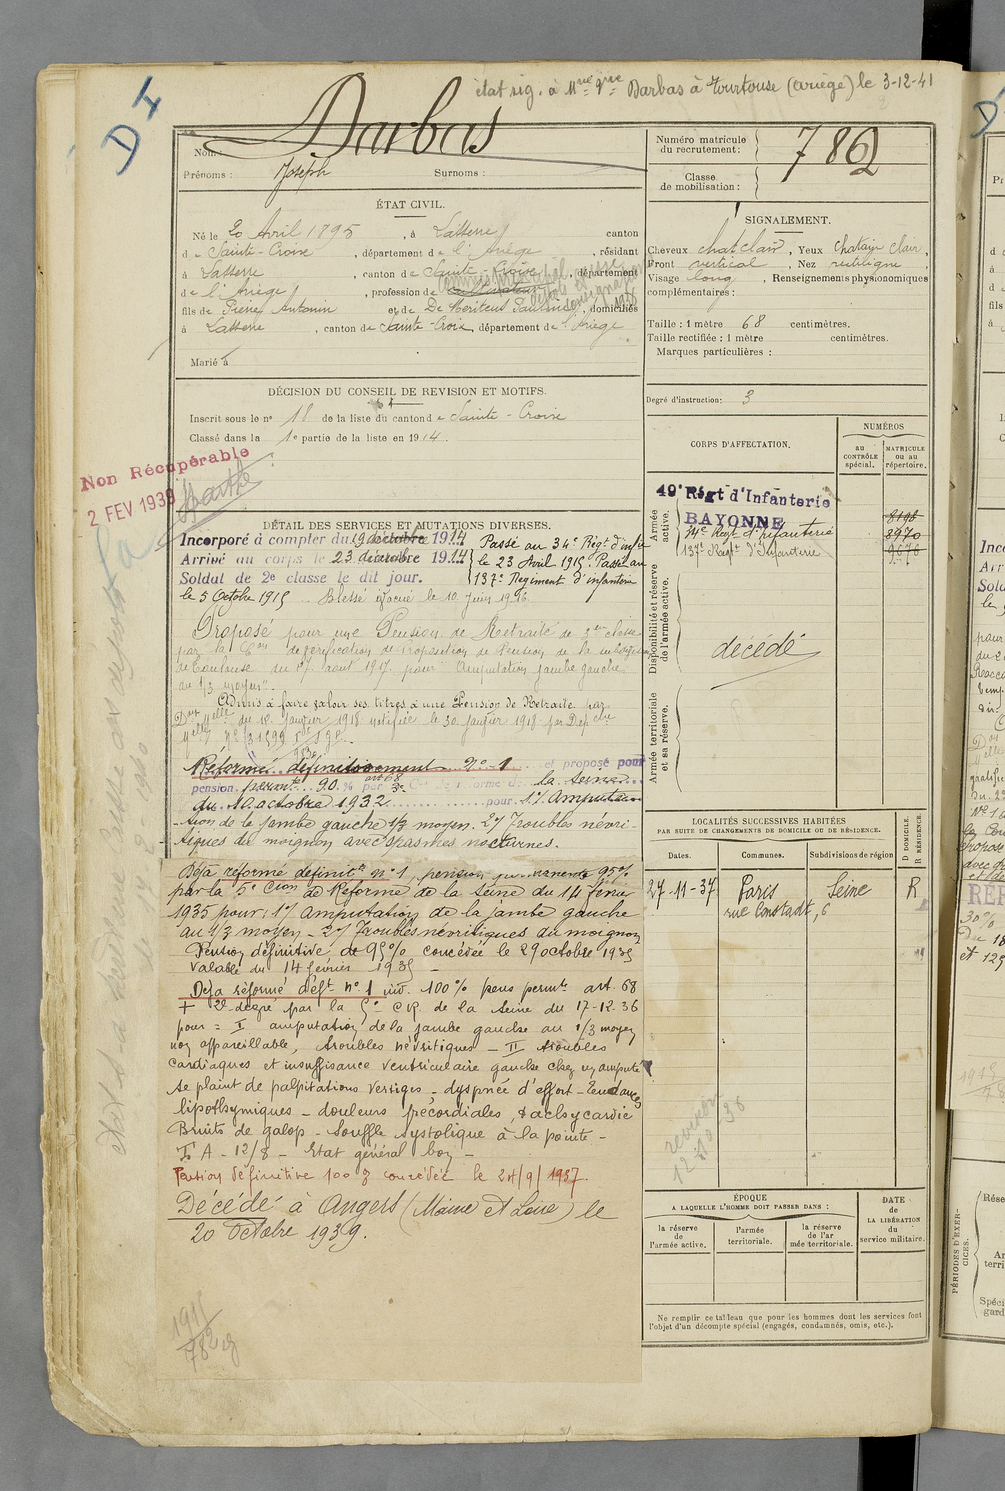 D4
état sig. à Mme Vve Darbas à Tourtouse (ariège) le 3-12-41
Nom : Darbas
Prénoms : Joseph Surnoms :
Numéro matricule du recrutement : 7862
Classe de mobilisation :
ÉTAT CIVIL.
Né le 20 Avril 1895, à Lasserre canton
de Sainte-Croix, département de l'Ariège, résidant
à Lasserre, canton de Sainte Croix, département
de l'Ariège, profession de
fils de Pierre Antonin et de De Meritens Pauline, domiciliés
à Lasserre, canton de Sainte-Croix, département de l'Ariège
Marié à
SIGNALEMENT.
Cheveux chat clair, Yeux Chatain clair,
Front vertical, Nez rectiligne
Visage long, Renseignements physionomiques
complémentaires :
Taille : 1 mètre 68 centimètres.
Taille rectifiée : 1 mètre centimètres.
Marques particulières :
Degré d'instruction : 3
DÉCISION DU CONSEIL DE REVISION ET MOTIFS.
Inscrit sous le no 18 de la liste du canton de Sainte-Croix
Classé dans la 1e partie de la liste en 1914.
Non Récupérable
2 FEV 1939
DÉTAIL DES SERVICES ET MUTATIONS DIVERSES.
Incorporé à compter du 19 décembre 1914
Arrivé au corps le 23 décembre 1914
Soldat de 2e classe le dit jour.
Passé au 34e Régt d'infie
le 23 Avril 1915. Passé au
137e Régiment d'infanterie
le 5 Octobre 1915 Blessé évacué le 10 Juin 1916
Proposé pour une Pension de Retraite de 3eme classe
par la Con de vérification de Proposition de Pension de la subdivision
de Toulouse du 27 août 1917 pour "Amputation jambe gauche
au 1/3 moyen".
Admis à faire valoir ses titres à une Pension de Retraite par
Don Melle du 18 Janvier 1918 notifiée le 30 janvier 1918 par Dep che
Réformé définitivement no 1 et proposé pour
pension permte 90 % par la Con de réforme de la Seine
du 10 octobre 1932 pour 1°/ amputa-
tion de la jambe gauche 1/3 moyen. 2°/ Troubles névri-
tiques du moignon avec spasmes nocturnes.
Déjà réformé définit. n° 1, pension permanente 95%
par la 5e Cion de Réforme de la Seine du 14 février
1935 pour : 1°/ amputation de la jambe gauche
au 1/3 moyen - 2°/ Troubles névritiques du moignon
Pension définitive de 95% concédée le 29 octobre 1935
valable du 14 février 1935 -
Déjà réformé déft. no 1 inv. 100% pens permte art. 68
+ 2e degré par la 5e CR. de la Seine du 17-12-36
pour = I amputation de la jambe gauche au 1/3 moyen
non appareillable, troubles névritiques - II troubles
cardiaques et insuffisance ventriculaire gauche chez un amputé
se plaint de palpitations vertiges - dyspnée d'effort - tendances
lipothymiques - douleurs précordiales, tachycardie
Bruits de galop - Souffle systolique à la pointe -
T A - 12/8 - Etat général bon -
Pension définitive 100 % concédée le 24/9/1937.
Décédé à Angers (Maine et Loire) le
20 Octobre 1939.
1915
782
CORPS D'AFFECTATION.
NUMÉROS
au CONTRÔLE spécial.
MATRICULE ou au répertoire.
Armée active.
49e Régt d'Infanterie
BAYONNE
34e Régt d'infanterie
137e Régt d'Infanterie
8198
8970
9676
Disponibilité et réserve de l'armée active.
décédé
Armée territoriale et sa réserve.
LOCALITÉS SUCCESSIVES HABITÉES
PAR SUITE DE CHANGEMENTS DE DOMICILE OU DE RÉSIDENCE.
Dates. Communes. Subdivisions de région
D DOMICILE. R RÉSIDENCE.
27-11-37 Paris Seine R
rue Constadt, 6
ÉPOQUE
A LAQUELLE L'HOMME DOIT PASSER DANS :
la réserve de l'armée active.
l'armée territoriale.
la réserve de l'armée territoriale.
DATE DE LA LIBÉRATION du service militaire.
Ne remplir ce tableau que pour les hommes dont les services font
l'objet d'un décompte spécial (engagés, condamnés, omis, etc.).
PÉRIODES D'EXERCICES.